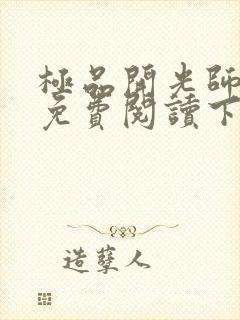 極品開光師
免費閱讀下
造孽人